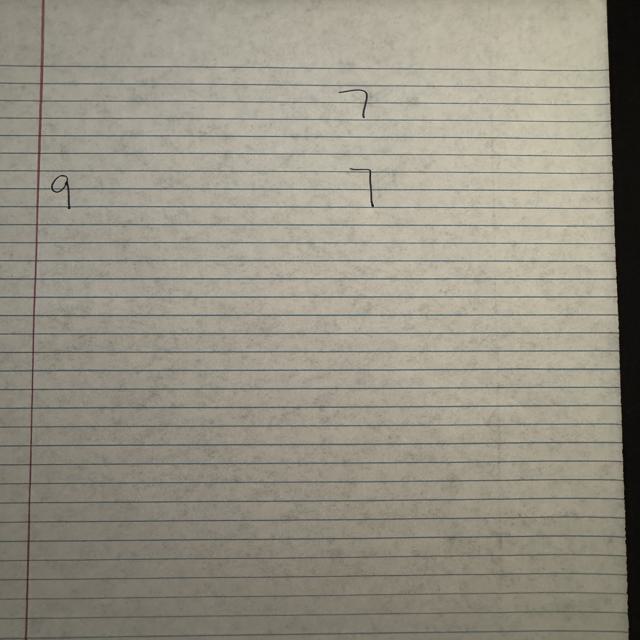 7
9 7